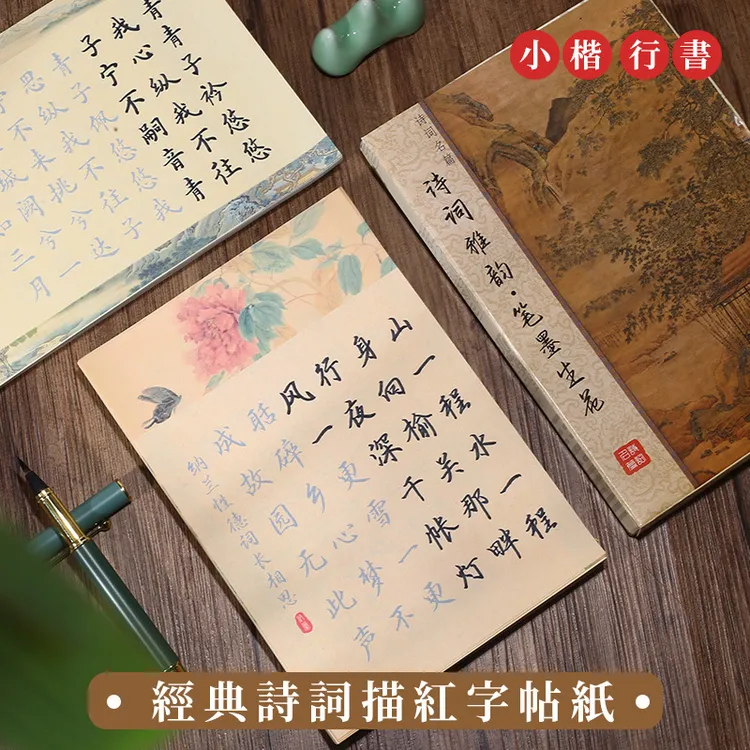 小楷行書
诗词名篇
诗词雅韵·笔墨生花
青子衿悠悠
我心纵我不往
子宁不嗣音青
青子佩悠悠我
思纵我不往子
宁不来挑兮达
城阙兮一
如三月
山一程水一程
身向榆关那畔
行夜深千帐灯
风一更雪一更
聒碎乡心梦不
成故园无此声
纳兰性德词长相思
• 經典詩詞描紅字帖紙 •